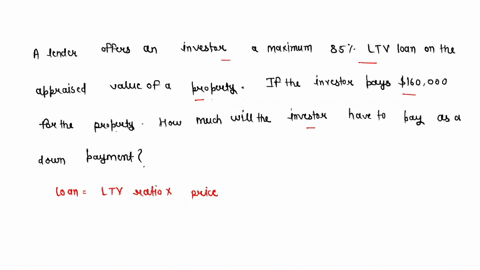 A lender offers an investor a maximum 85% LTV loan on the
appraised value of a property. If the investor pays $160,000
for the property. How much will the investor have to pay as a
down payment?
loan = LTV ratio x price